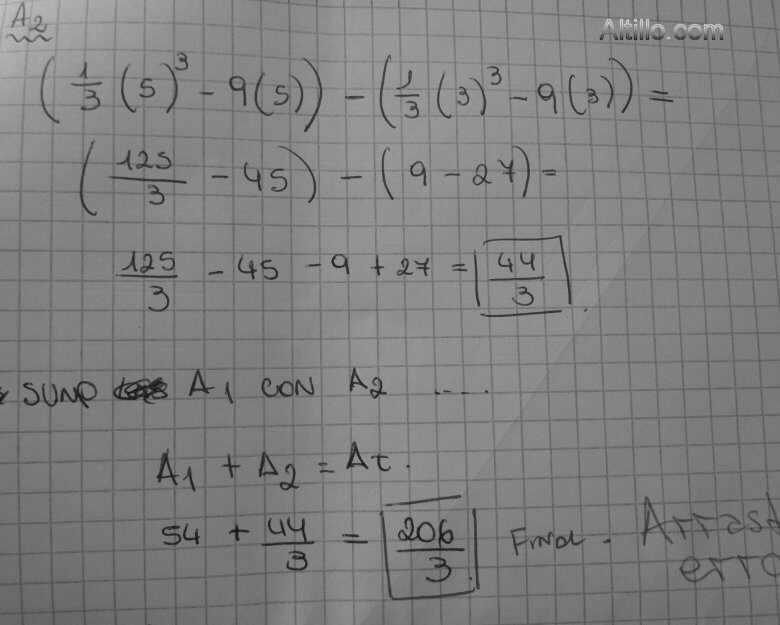 A2
Altillo.com
(1/3 (5)^3 - 9(5)) - (1/3 (3)^3 - 9(3)) =
(125/3 - 45) - (9 - 27) =
125/3 - 45 - 9 + 27 = 44/3
SUMO A1 CON A2 ....
A1 + A2 = At.
54 + 44/3 = 206/3 Final.